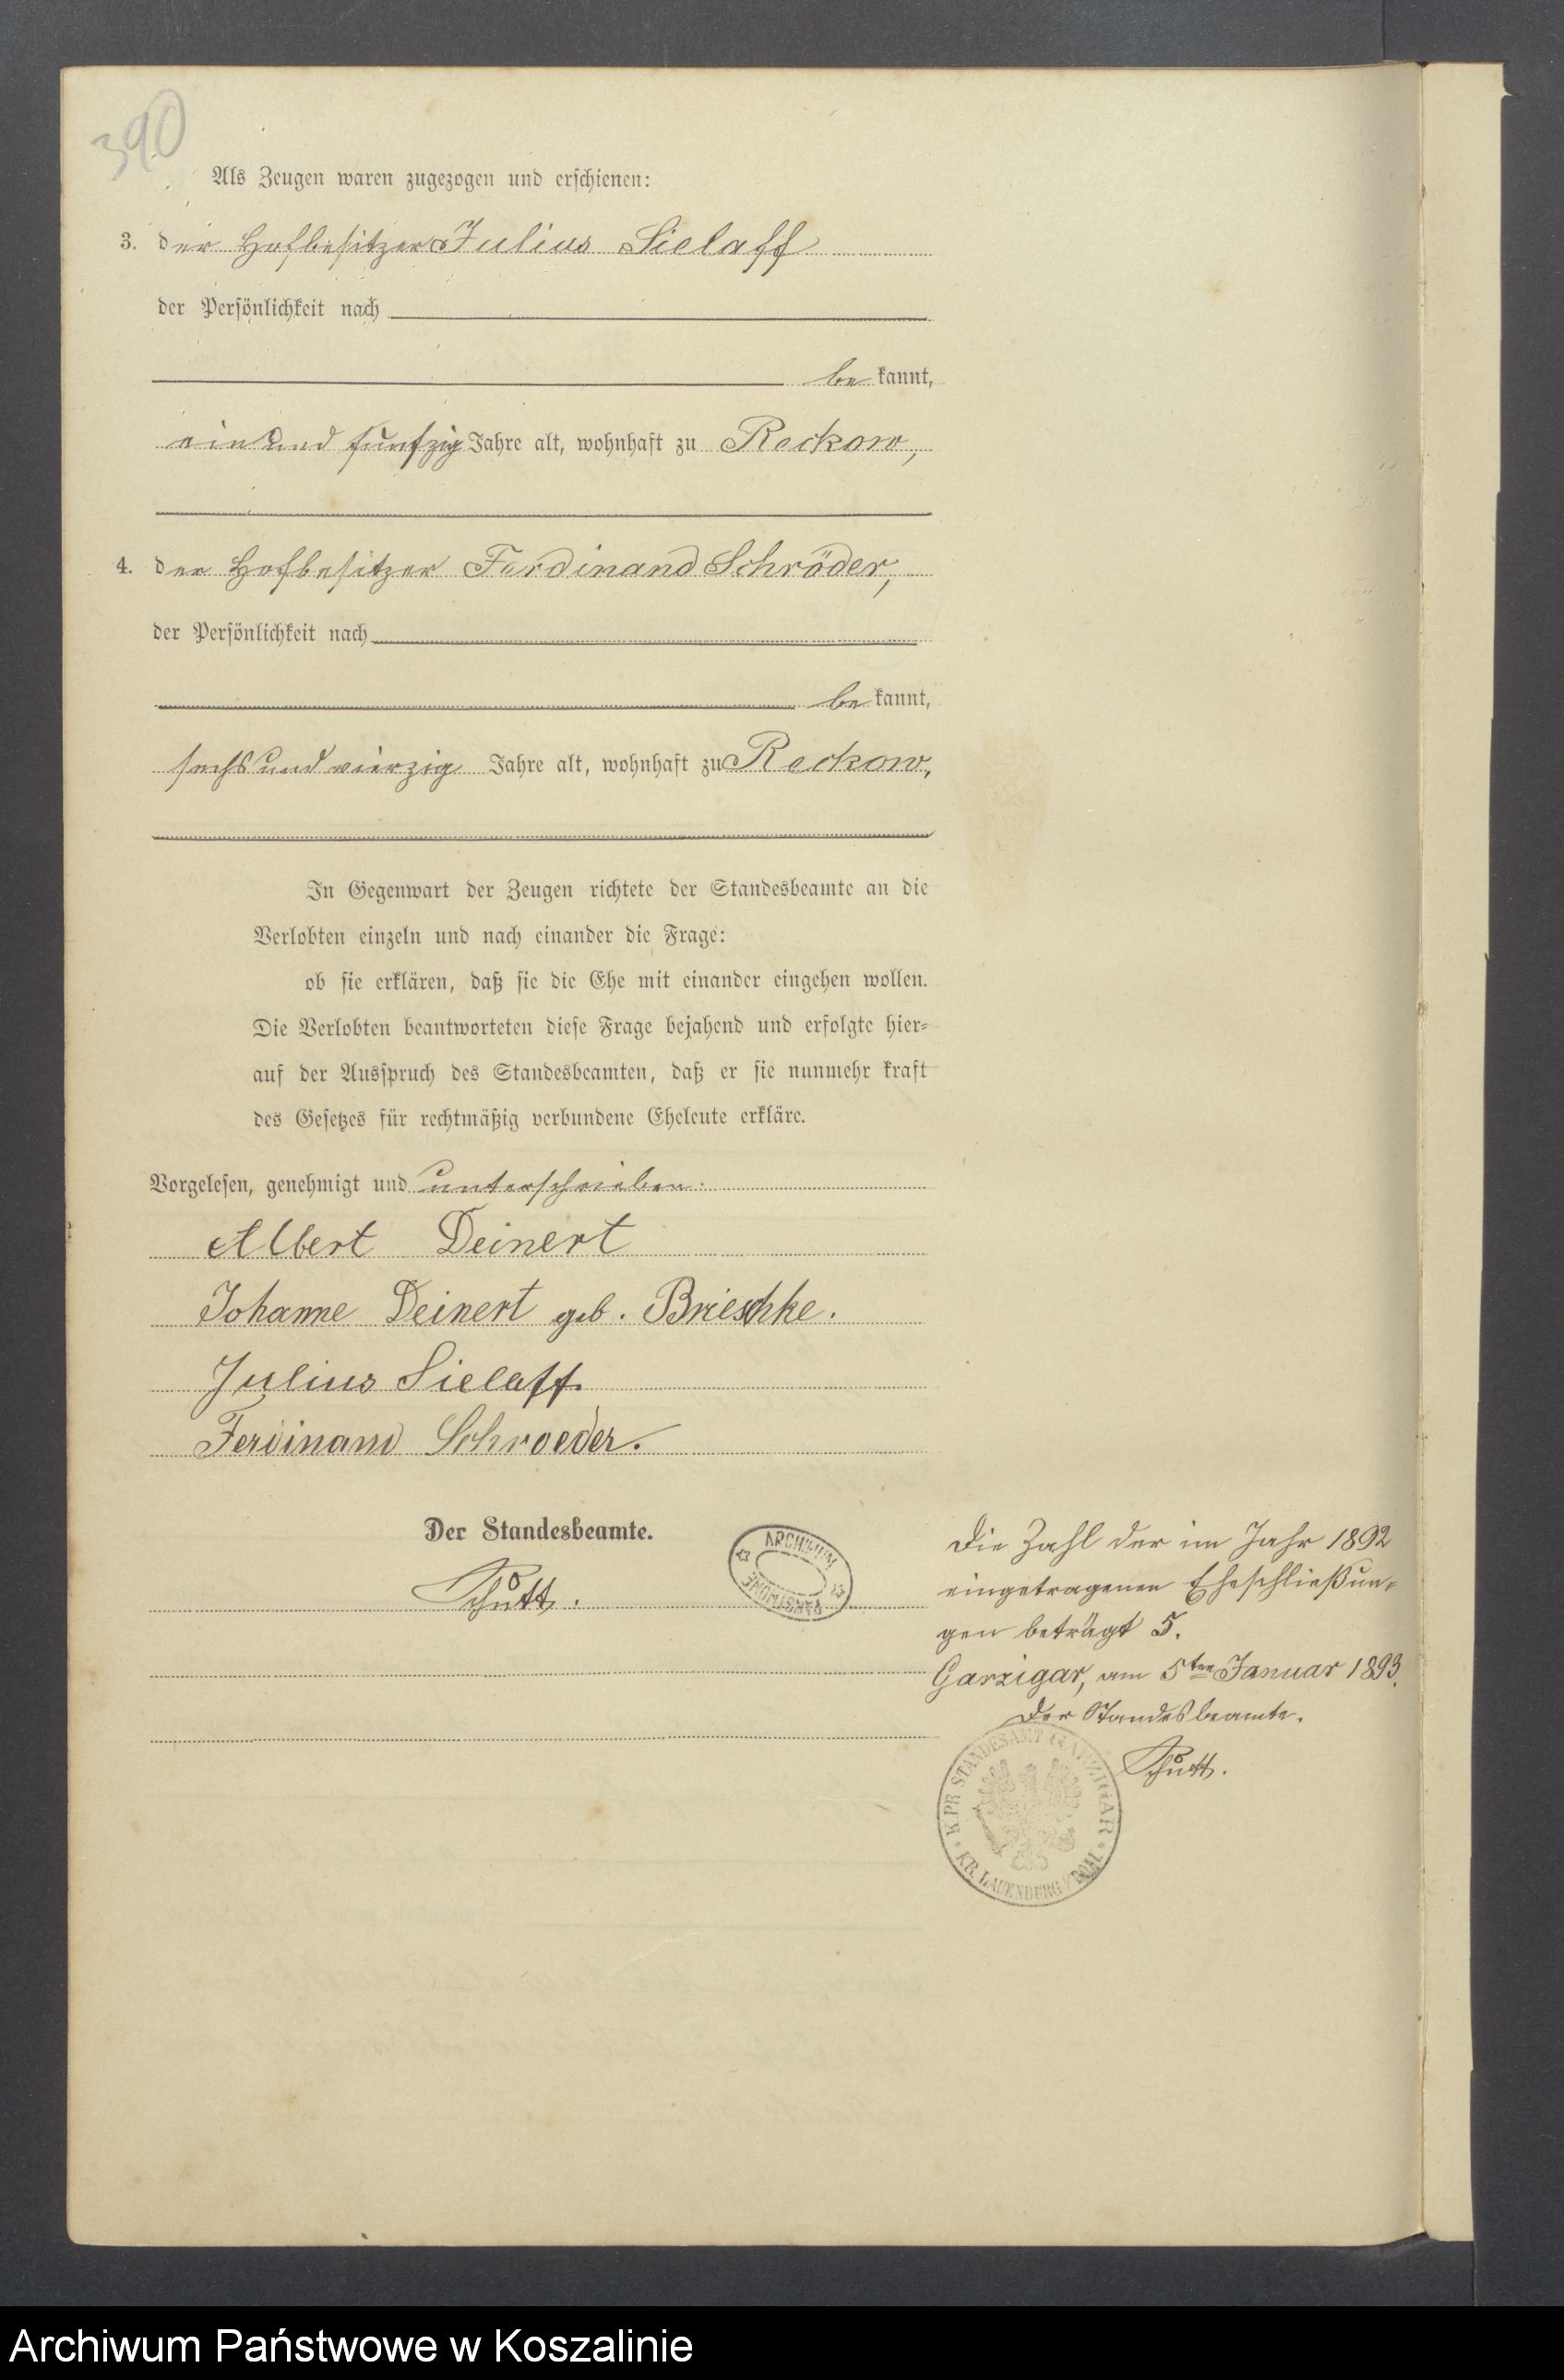 390
Als Zeugen waren zugezogen und erschienen:
3. der Hofbesitzer Julius Sielaff
der Persönlichkeit nach
be kannt,
ein und funfzig Jahre alt, wohnhaft zu Reckow,
4. der Hofbesitzer Ferdinand Schröder,
der Persönlichkeit nach
be kannt,
sechs und vierzig Jahre alt, wohnhaft zu Reckow,
In Gegenwart der Zeugen richtete der Standesbeamte an die
Verlobten einzeln und nach einander die Frage:
ob sie erklären, daß sie die Ehe mit einander eingehen wollen.
Die Verlobten beantworteten diese Frage bejahend und erfolgte hier-
auf der Ausspruch des Standesbeamten, daß er sie nunmehr kraft
des Gesetzes für rechtmäßig verbundene Eheleute erkläre.
Vorgelesen, genehmigt und unterschrieben.
Albert Deinert
Johanne Deinert geb. Brieschke.
Julius Sielaff.
Ferdinand Schroeder.
Der Standesbeamte.
Schutt.
ARCHIWUM
PAŃSTWOWE
Die Zahl der im Jahr 1892
eingetragenen Eheschließun-
gen beträgt 5.
Garzigar, am 5ten Januar 1893.
Der Standesbeamte.
Schutt.
K. PR. STANDESAMT GARZIGAR
KR. LAUENBURG i/POM.
Archiwum Państwowe w Koszalinie